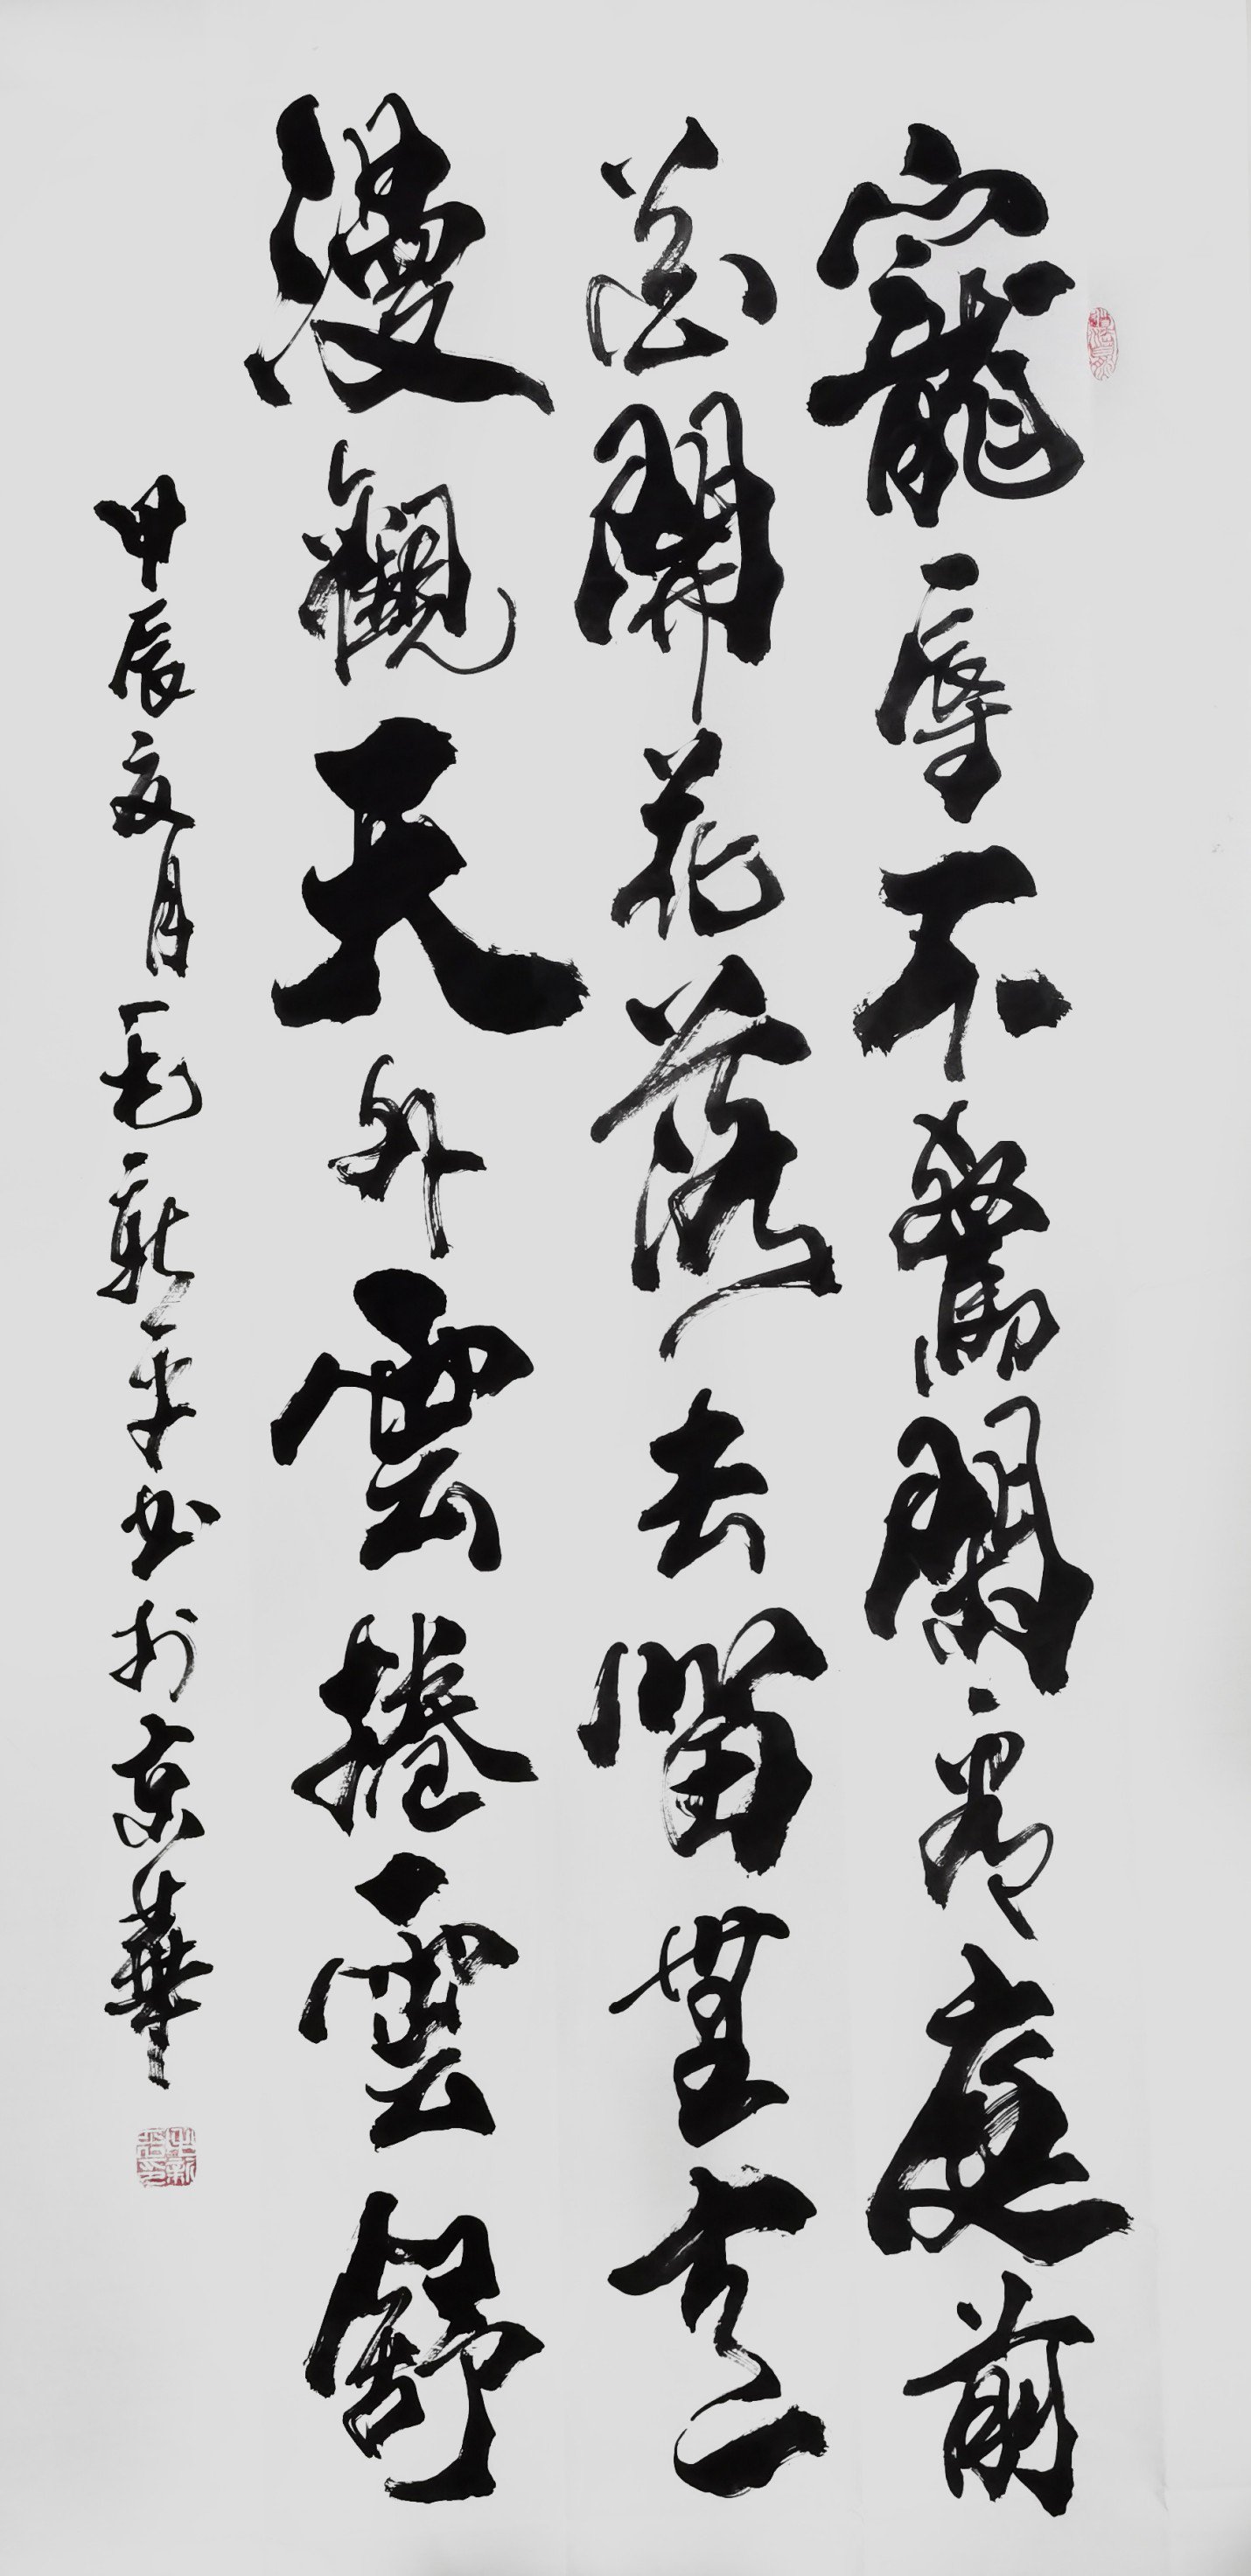 寵辱不驚閑看庭前
花開花落去留無意
漫觀天外雲捲雲舒
甲辰夏月毛新平书於京華